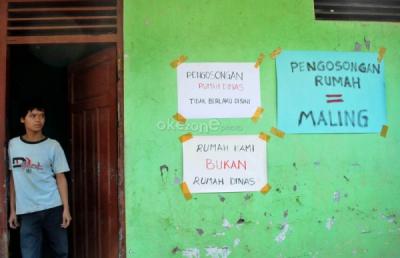 PENGOSONGAN
RUMAH DINAS
TIDAK BERLAKU DISINI
PENGOSONGAN
RUMAH
=
MALING
RUMAH KAMI
BUKAN
RUMAH DINAS
okezone